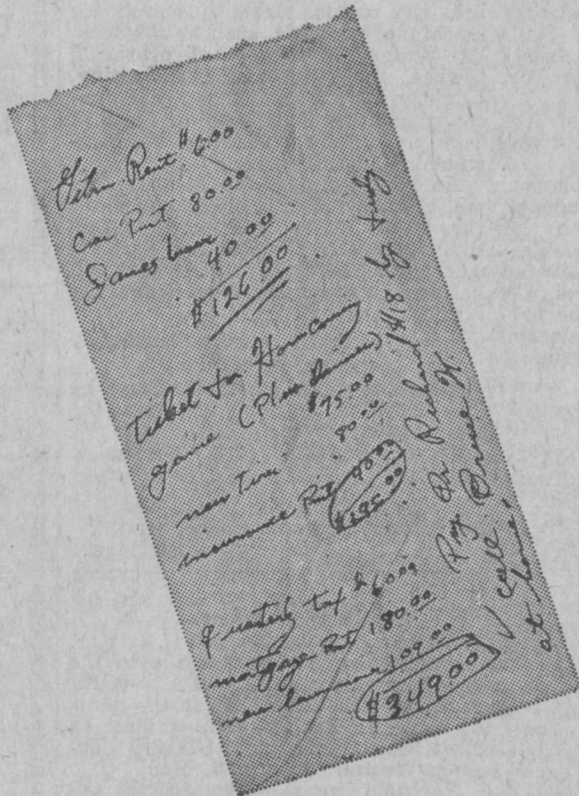 Film Rent $6.00
Car Pmt 80.00
James loan 40.00
$126.00
ticket for Homecoming
game (Plus dinner) $75.00
new tire 80.00
insurance Pmt 40.00
$195.00
quarterly tax $60.00
mortgage Pmt 180.00
new 109.00
$349.00
Pay Dr Richard by
√ call Bruce H.
at home.